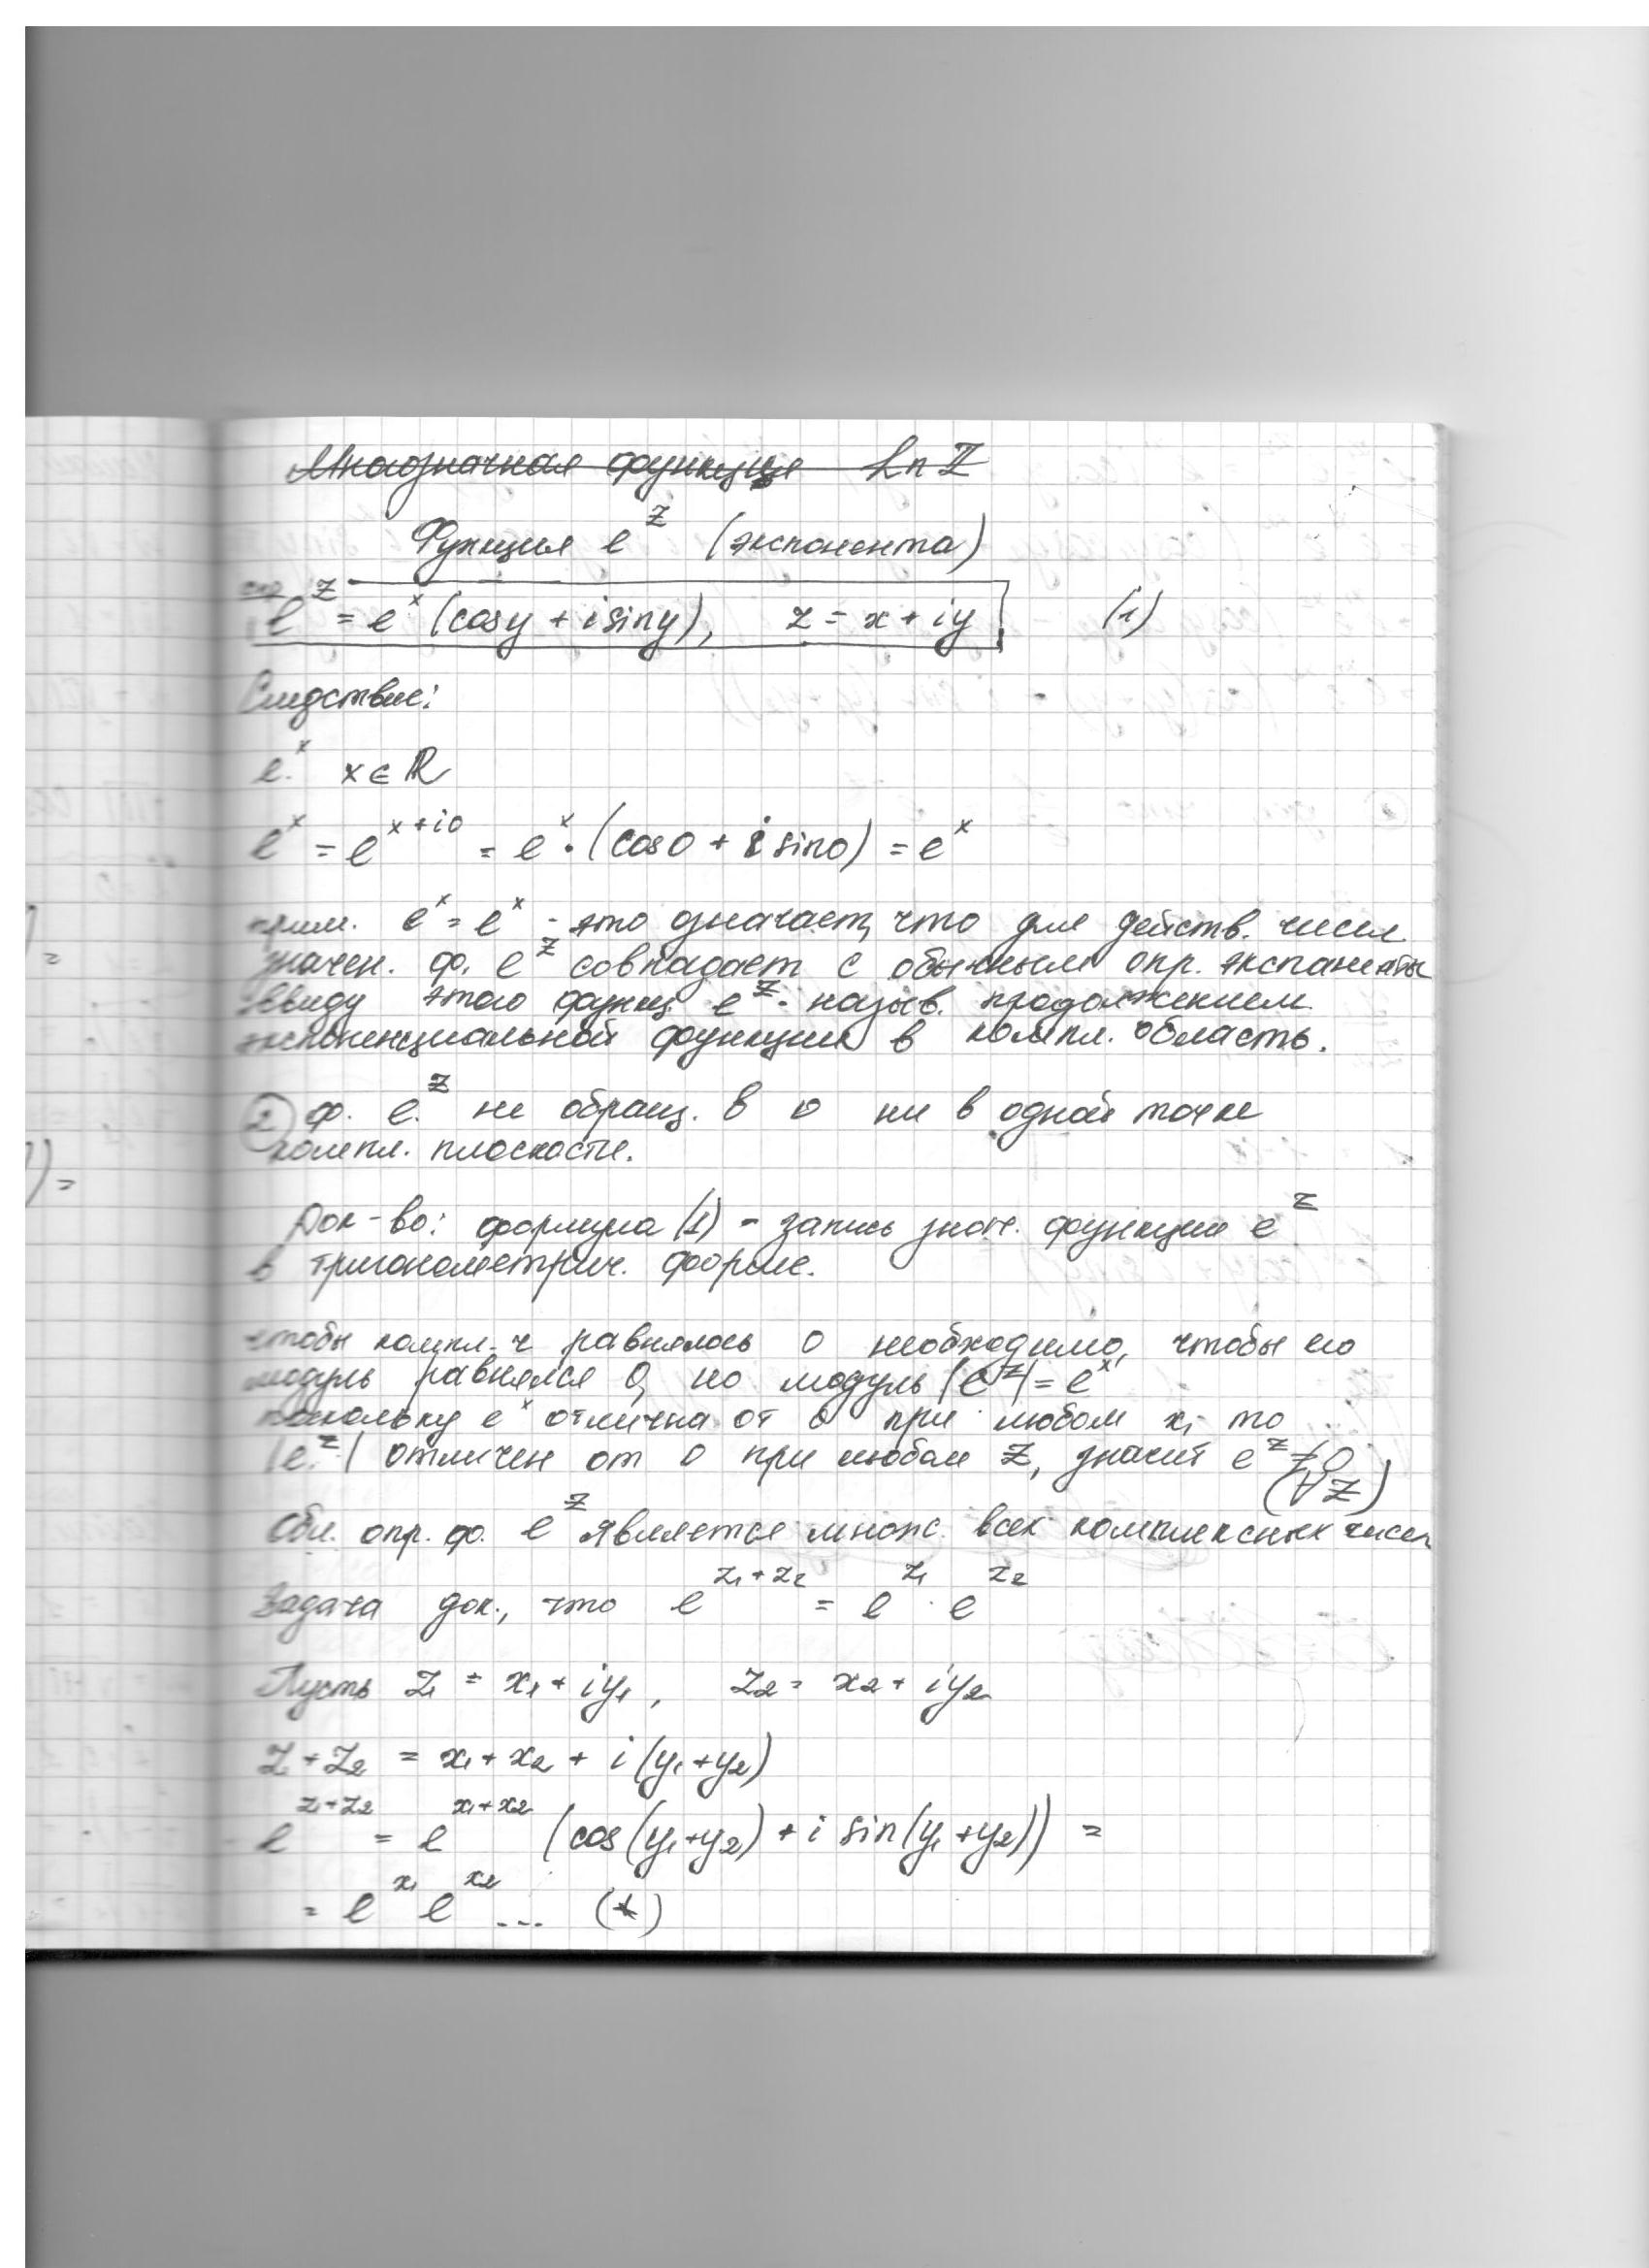 Многозначная функция Ln Z
Функция e^z (экспонента)
e^z = e^x (cos y + i sin y), z = x + iy (1)
Следствие:
e^x x ∈ ℝ
e^x = e^{x+i0} = e^x · (cos 0 + i sin 0) = e^x
прим. e^x = e^x - это означает, что для действ. чисел
значен. ф. e^z совпадает с обычным опр. экспоненты
ввиду этого функц. e^z - назыв. продолжением
экспоненциальной функции в компл. область.
② ф. e^z не обращ. в 0 ни в одной точке
компл. плоскости.
Док-во: формула (1) - запись знач. функции e^z
в тригонометрич. форме.
чтобы компл. ч равнялось 0 необходимо, чтобы его
модуль равнялся 0, но модуль |e^z| = e^x
поскольку e^x отлична от 0 при любом x, то
|e^z| отличен от 0 при любом z, значит e^z ≠ 0
(∀z)
Обл. опр. ф. e^z является множ. всех комплексных чисел
Задача док., что e^{z₁+z₂} = e^{z₁} · e^{z₂}
Пусть z₁ = x₁ + iy₁, z₂ = x₂ + iy₂
z₁ + z₂ = x₁ + x₂ + i (y₁ + y₂)
e^{z₁+z₂} = e^{x₁+x₂} (cos (y₁+y₂) + i sin (y₁+y₂)) =
= e^{x₁} e^{x₂} ... (*)